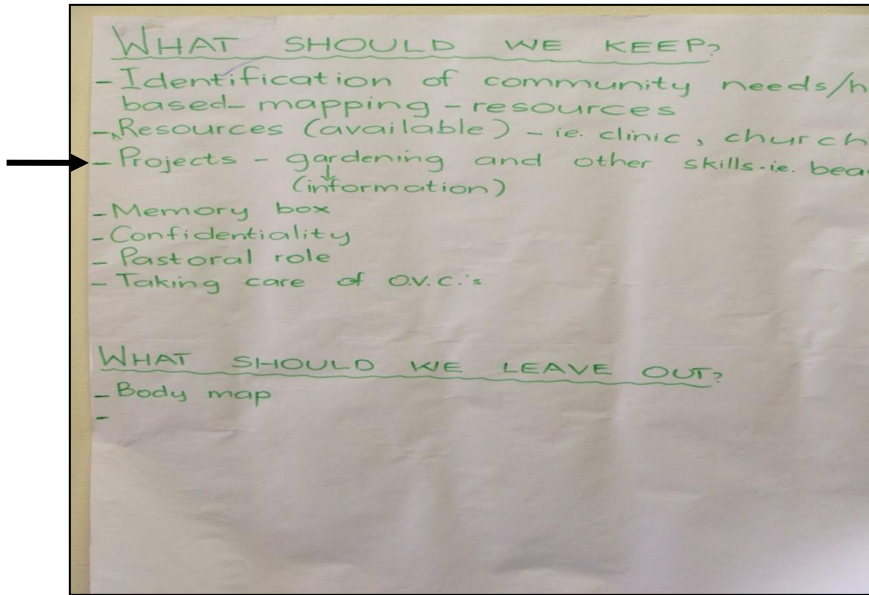 WHAT SHOULD WE KEEP?
- Identification of community needs/h
based-mapping - resources
- Resources (available) - ie. clinic, church
- Projects - gardening and other skills-ie. bea
(information)
- Memory box
- Confidentiality
- Pastoral role
- Taking care of O.V.C.'s
WHAT SHOULD WE LEAVE OUT?
- Body map
-